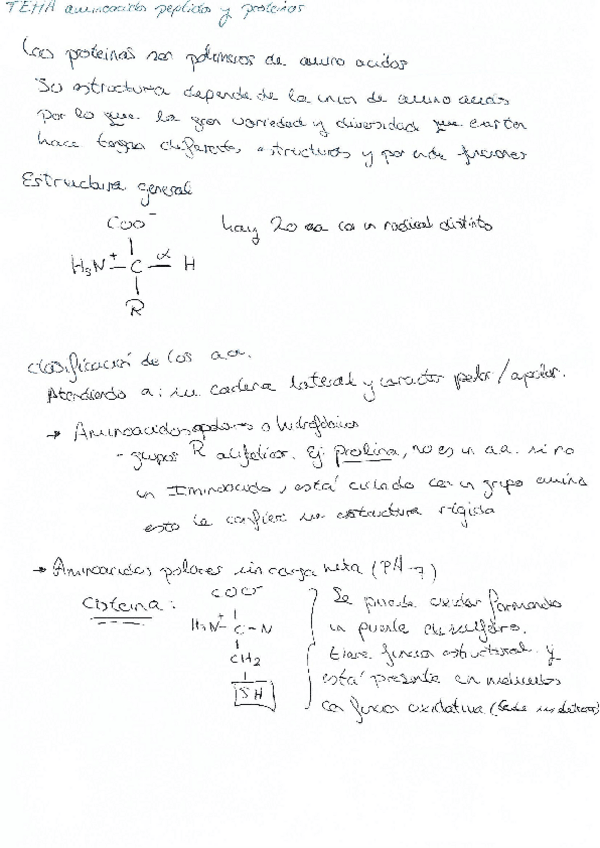 TEMA aminoacidos peptidos y proteinas
Las proteinas son polimeros de amino acidos
Su estructura depende de la union de amino acidos
por lo que la gran variedad y diversidad que existen
hace tengan diferentes estructuras y por ende funciones
Estructura general
COO⁻ hay 20 aa con un radical distinto
H₃N⁺ — C — α H
R
Clasificación de los a.a.
Atendiendo a: su cadena lateral y caracter polar/apolar.
→ Aminoacidos apolares o hidrofóbicos
- grupos R alifáticos. Ej prolina, no es un a.a. si no
un Iminoacido, está ciclado con un grupo amino
esto le confiere una estructura rígida
→ Aminoacidos polares sin carga neta (PH-7)
Cisteina: COO⁻ Se puede oxidar formando
H₃N⁺ - C - N un puente disulfuro.
CH₂ tiene funcion estructural y
SH está presente en moleculas
con funcion oxidativa